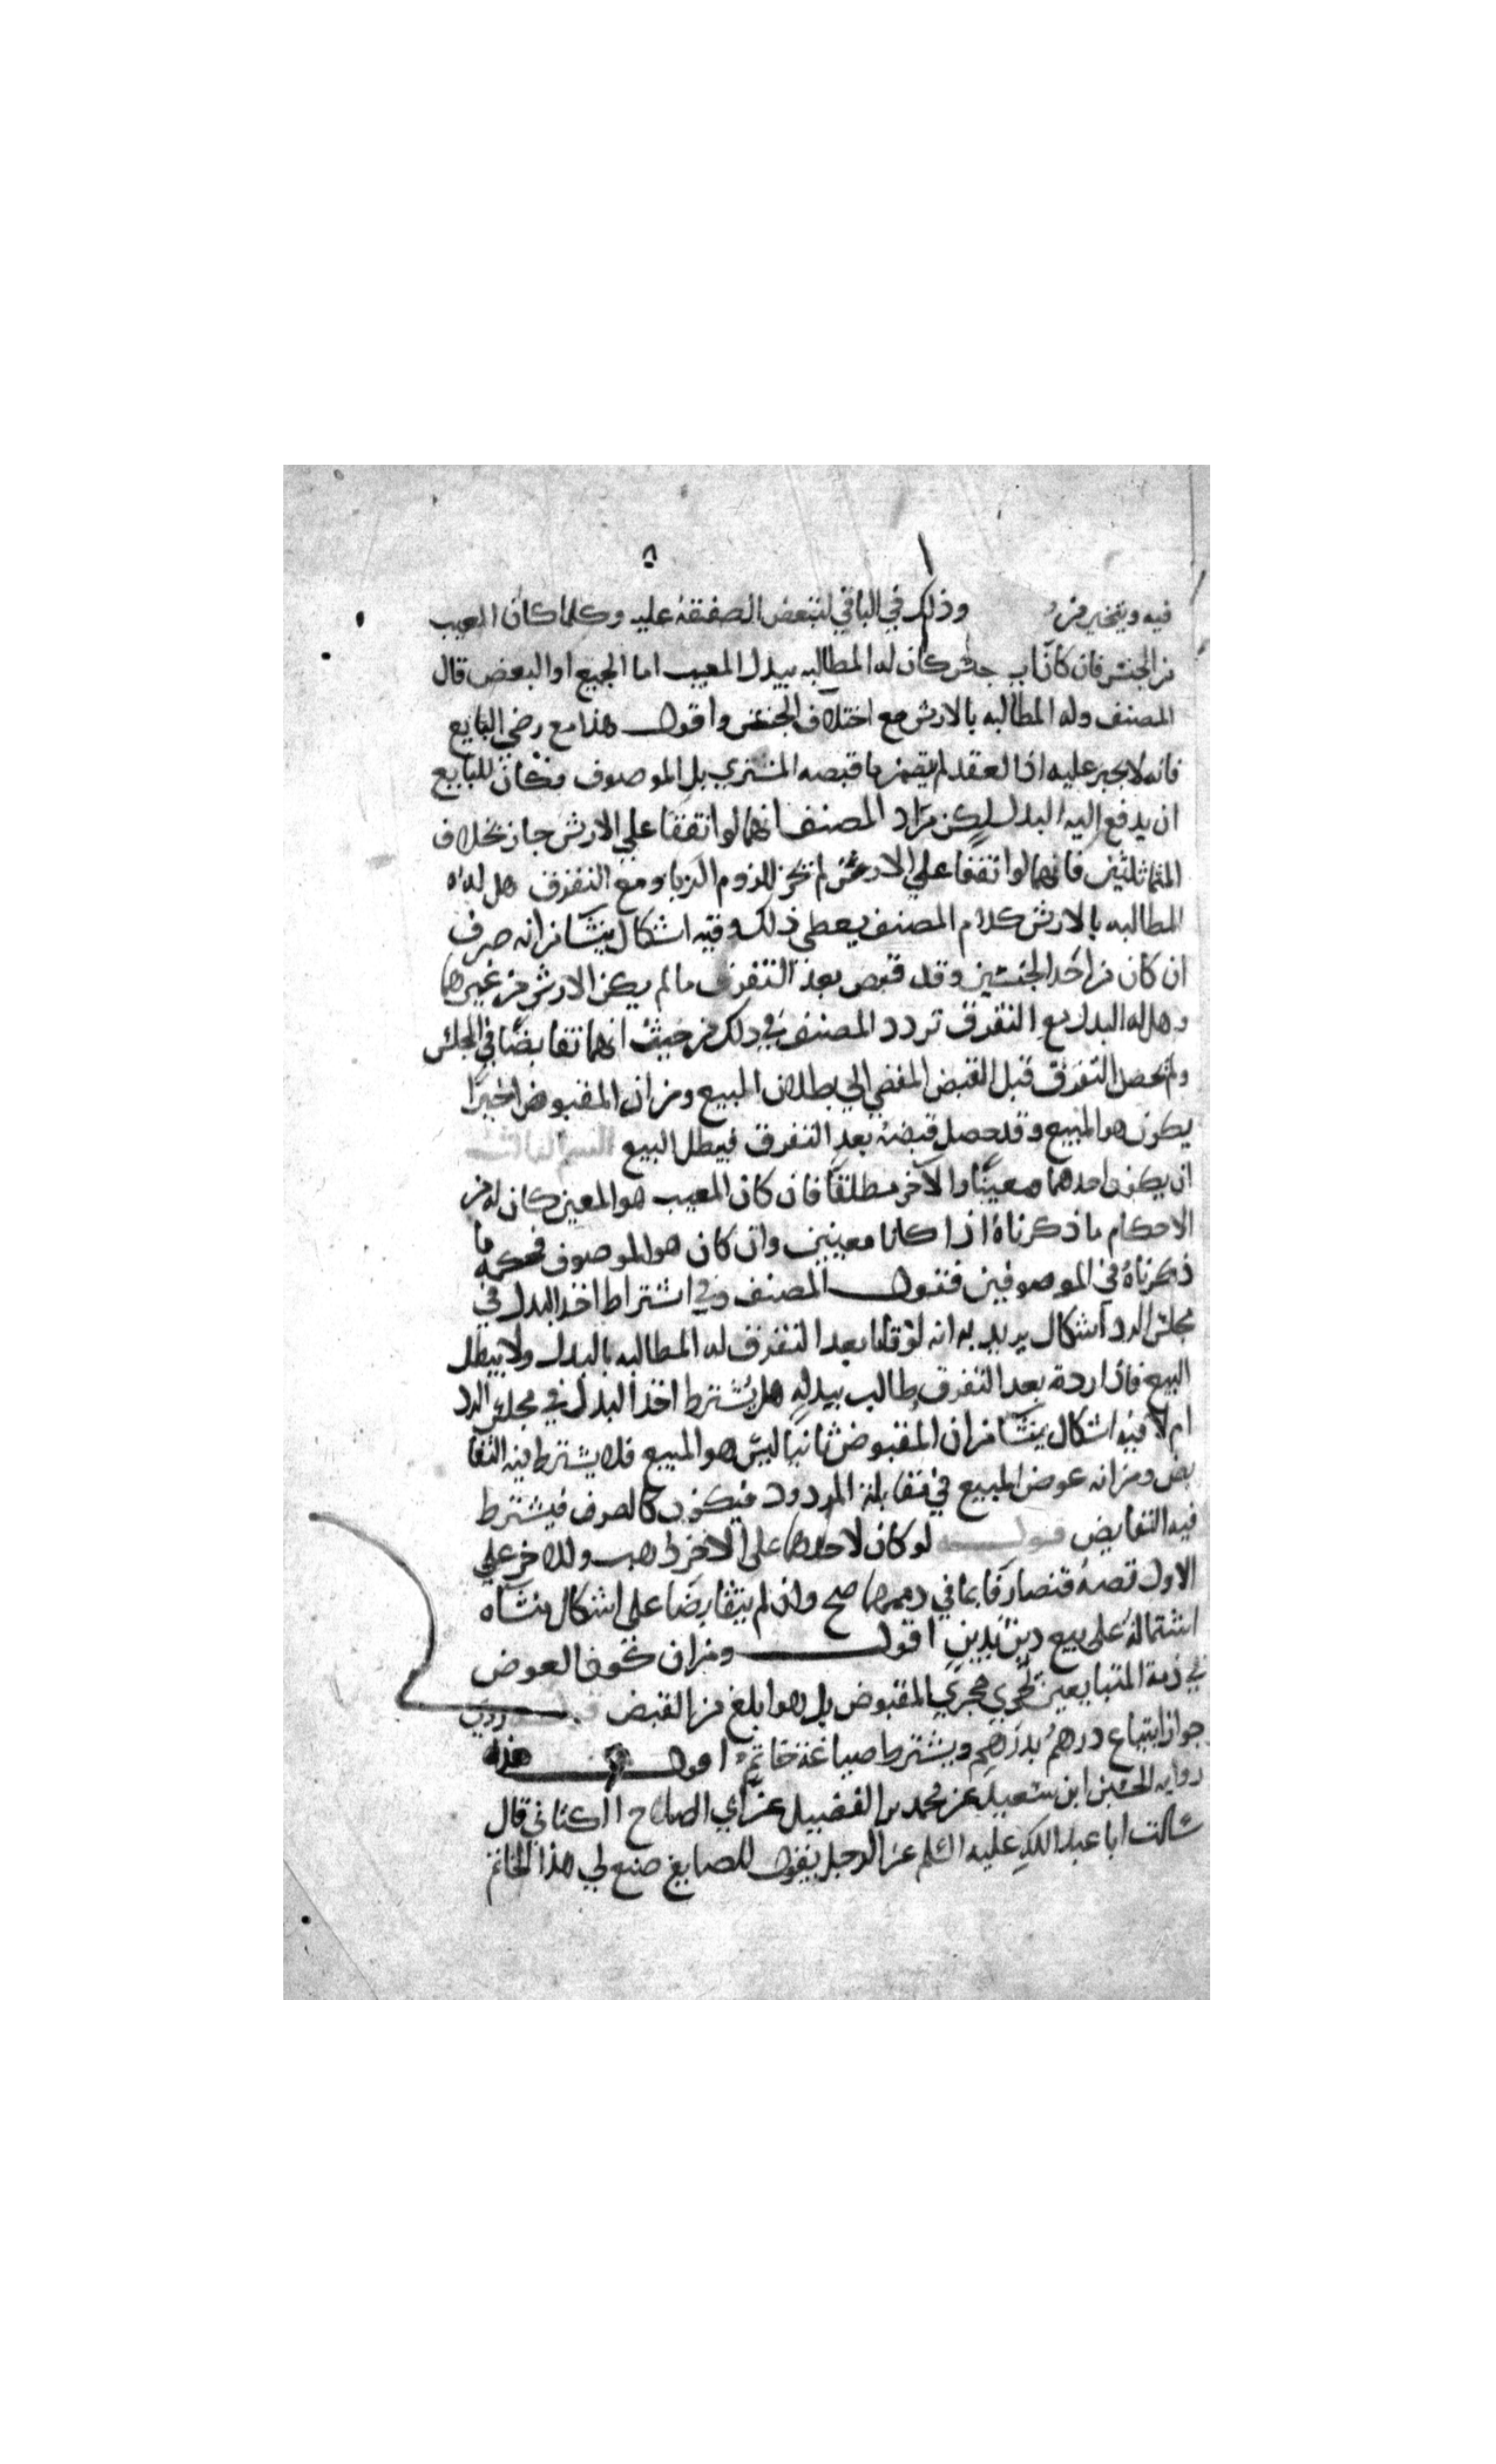 فيه ويتخير من وذلك في الباقي لتبعض الصفقة عليه وكلما كان العيب
من الجنس فان كانا في جنس كان له المطالبه ببدل المعيب اما الجميع او البعض قال
المصنف وله المطالبه بالارش مع اختلاف الجنس واقول هذا مع رضى البايع
فانه لا يجبر عليه اذ العقد لم يتضمن ما قبضه المشتري بل الموصوف فكان للبايع
ان يدفع اليه البدل لكن مراد المصنف انهما لو اتفقا على الارش جاز بخلاف
المتماثلين فانهما لو اتفقا على الارش لم يجز للزوم الربا ومع التفرق هل له
المطالبه بالارش كلام المصنف يعطي ذلك وفيه اشكال ينشا من انه صرف
ان كان من احد الجنسين وقد قبض بعد التفرق ما لم يكن الارش من غيرهما
وهل له البدل مع التفرق تردد المصنف في ذلك من حيث انهما تقابضا في المجلس
ولم يحصل التفرق قبل القبض المفضي الى بطلان المبيع ومن ان المقبوض اخيرا
يكون هو المبيع وقد حصل قبضه بعد التفرق فيبطل البيع القسم الثالث
ان يكون احدهما معينا والآخر مطلقا فان كان المعيب هو المعين كان له من
الاحكام ما ذكرناه اذا كانا معينين وان كان هو الموصوف فحكمه ما
ذكرناه في الموصوفين فقول المصنف وفي اشتراط اخذ البدل في
مجلس الرد اشكال يريد به انه لو قلنا بعد التفرق له المطالبه بالبدل ولا يبطل
البيع فاذا رده بعد التفرق وطالب ببدله هل يشترط اخذ البدل في مجلس الرد
ام لا فيه اشكال ينشا من ان المقبوض ثانيا ليس هو المبيع فلا يشترط فيه التقا
بض ومن انه عوض المبيع في مقابلة المردود فيكون كالصرف فيشترط
فيه التقابض قوله لو كان لاحدهما على الاخر ذهب وللاخر على
الاول فضة فتصارفا بما في ذممهما صح وان لم يتقابضا على اشكال منشاه
اشتماله على بيع دين بدين اقول ومن ان كون العوض
في ذمة المتبايعين يجري مجرى المقبوض بل هو ابلغ من القبض قوله روي
جواز ابتياع درهم بدرهم ويشترط صياغة خاتم اقول هذه
روايه الحسين ابن سعيد عن محمد بن الفضيل عن ابي الصلاح الكناني قال
سالت ابا عبد الله عليه السلم عن الرجل يقول للصايغ صنع لي هذا الخاتم